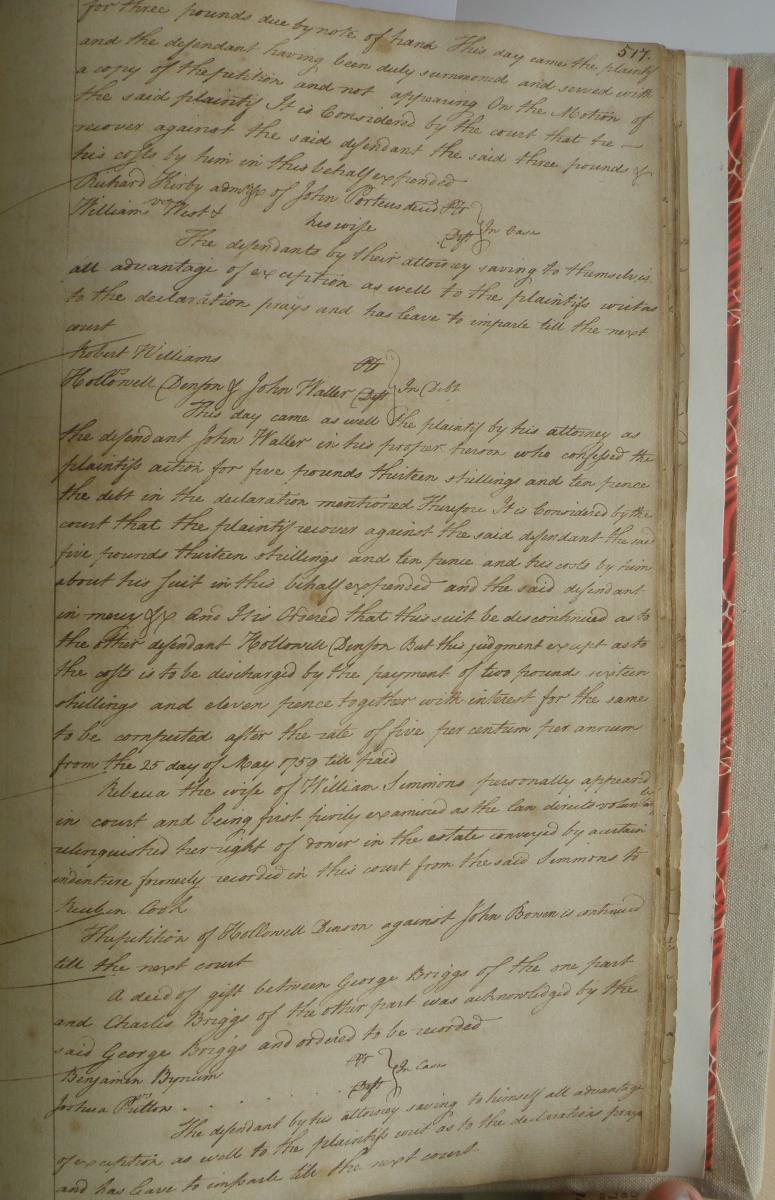 517.
for three pounds due by note of hand This day came the plaintif
and the defendant having been duly summoned and served with
a copy of the petition and not appearing On the Motion of
the said plaintif It is Considered by the court that he
recover against the said defendant the said three pounds &
his costs by him in this behalf expended
Richard Kirby adm of John Porteus decd Plt
vs } In Case
William West & his wife Deft
The defendants by their attorney saving to themselves
all advantage of exception as well to the plaintifs writ as
to the declaration prays and has leave to imparle till the next
court
Robert Williams Plt
vs } In Debt
Hollowell Denson & John Waller Deft
This day came as well the plaintif by his attorney as
the defendant John Waller in his proper person who confessed the
plaintifs action for five pounds thirteen shillings and ten pence
the debt in the declaration mentioned Therefore It is Considered by the
court that the plaintif recover against the said defendant the said
five pounds thirteen shillings and ten pence and his costs by him
about his suit in this behalf expended and the said defendant
in mercy &c And It is Ordered that this suit be discontinued as to
the other defendant Hollowell Denson But this judgment except as to
the costs is to be discharged by the payment of two pound sixteen
shillings and eleven pence together with interest for the same
to be computed after the rate of five per centum per annum
from the 25 day of May 1759 till paid
Rebecca the wife of William Simmons personally appeared
in court and being first privily examined as the Law directs voluntarily
relinquished her right of dower in the estate conveyed by a certain
indenture formerly recorded in this court from the said Simmons to
Reuben Cook
The petition of Hollowell Denson against John Bowen is continued
till the next court
A deed of gift between George Briggs of the one part
and Charles Briggs of the other part was acknowledged by the
said George Briggs and ordered to be recorded
Benjamin Bynum Plt
vs } In Case
Joshua Deft
The defendant by his attorney saving to himself all advantage
of exception as well to the plaintifs writ as to the declarations prays
and has leave to imparle till the next court